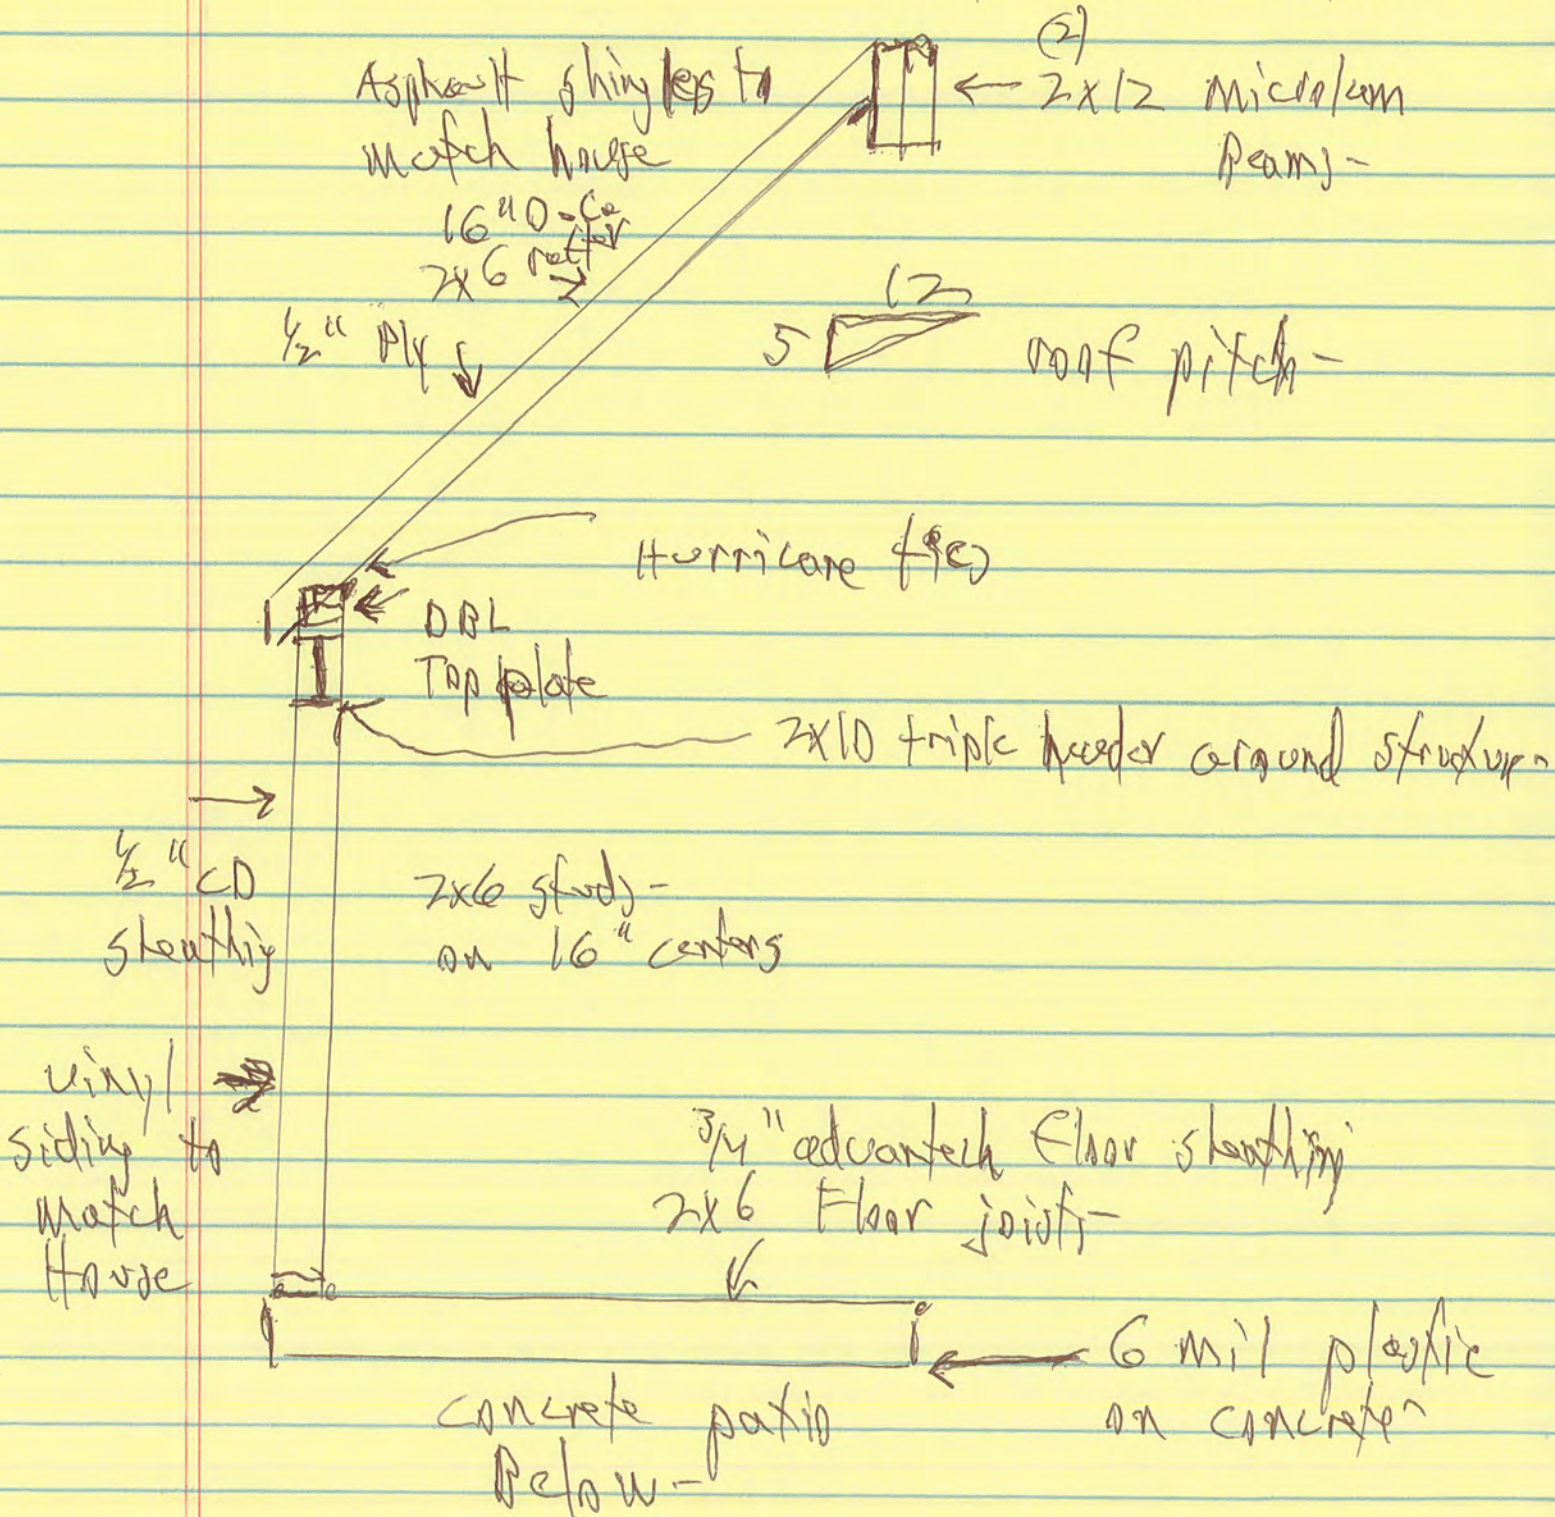 (2)
Asphault shingles to
match house
2x12 microlam
Beams-
16"O.C.
2x6 rafter
1/2" Ply
12
5
roof pitch-
Hurricane ties
DBL
Top plate
2x10 triple header around structure-
1/2" CD
sheathig
2x6 studs-
on 16" centers
vinyl
siding to
match
House
3/4" advantech Floor sheathing
2x6 Floor joists-
6 mil plastic
on concrete-
concrete patio
Below-